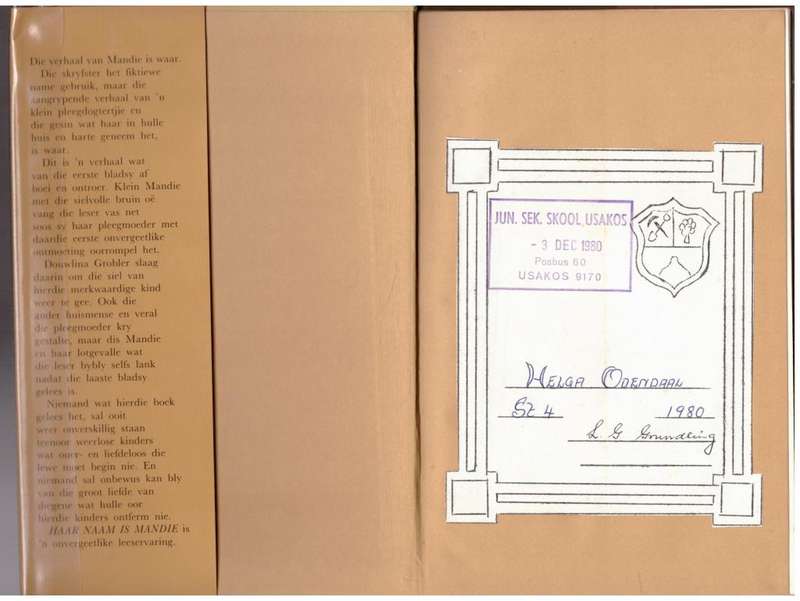 Die verhaal van Mandie is waar.
Die skryfster het fiktiewe
name gebruik, maar die
aangrypende verhaal van 'n
klein pleegdogtertjie en
die gesin wat haar in hulle
huis en harte geneem het,
is waar.
Dit is 'n verhaal wat
van die eerste bladsy af
boei en ontroer. Klein Mandie
met die sielvolle bruin oë
vang die leser vas net
soos sy haar pleegmoeder met
daardie eerste onvergeetlike
ontmoeting oorrompel het.
Douwlina Grobler slaag
daarin om die siel van
hierdie merkwaardige kind
weer te gee. Ook die
ander huismense en veral
die pleegmoeder kry
gestalte, maar dis Mandie
en haar lotgevalle wat
die leser bybly selfs lank
nadat die laaste bladsy
gelees is.
Niemand wat hierdie boek
gelees het, sal ooit
weer onverskillig staan
teenoor weerlose kinders
wat ouer- en liefdeloos die
lewe moet begin nie. En
niemand sal onbewus kan bly
van die groot liefde van
diegene wat hulle oor
hierdie kinders ontferm nie.
HAAR NAAM IS MANDIE is
'n onvergeetlike leeservaring.
JUN. SEK. SKOOL, USAKOS
- 3 DEC 1980
Posbus 60
USAKOS 9170
HELGA ODENDAAL
St 4 1980
L G Grundling